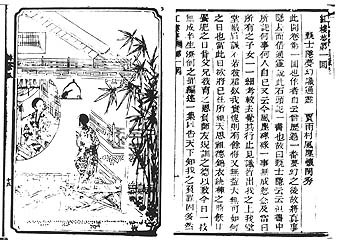 紅樓夢第一回
甄士隱夢幻識通靈 賈雨村風塵懷閨秀
此開卷第一回也作者自云曾歷過一番夢幻之後故將真事
隱去而借通靈說此石頭記一書也故曰甄士隱云云但書中
所記何事何人自己又云今風塵碌碌一事無成忽念及當日
所有之女子一一細考較去覺其行止見識皆出我之上我堂
堂鬚眉誠不若彼裙釵我實愧則有餘悔又無益大無可如何
之日也當此日欲將已往所賴天恩祖德錦衣紈袴之時飫甘
饜肥之日背父兄教育之恩負師友規訓之德以致今日一技
無成半生潦倒之罪編述一集以告天下知我之負罪固多然